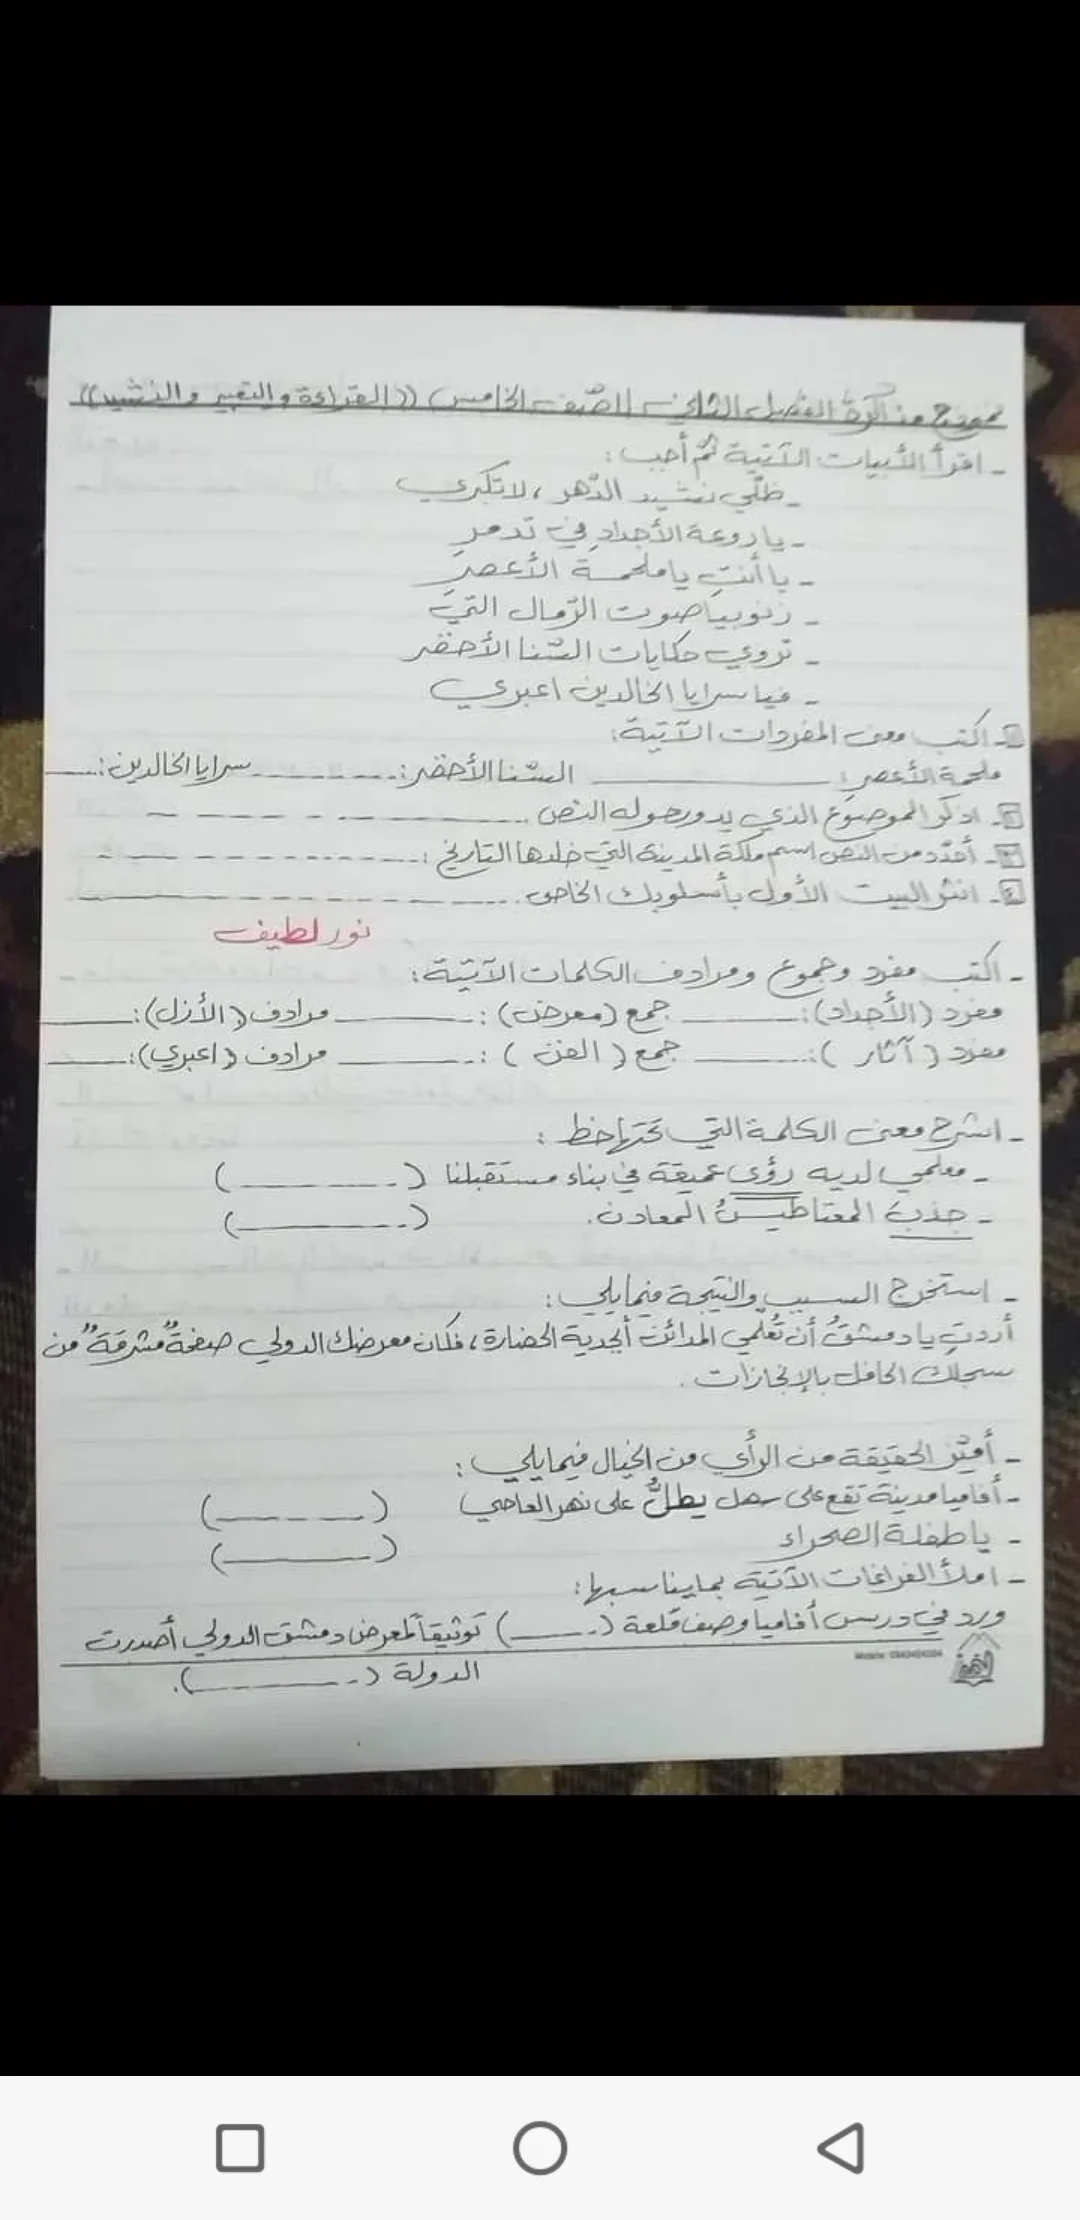 نموذج مذاكرة الفصل الثاني للصّف الخامس ((القراءة والتعبير والنشيد))
- اقرأ الأبيات الآتية ثم أجب :
- ظلّي نشيد الدّهر ، لا تكبري
- يا روعة الأجدادِ في تدمرِ
- يا أنتِ يا ملحمة الأعصرِ
- زنوبيا صوت الرّمال التي
- تروي حكايات السّنا الأخضر
- فيا سرايا الخالدين اعبري
١- اكتب معنى المفردات الآتية:
ملحمة الأعصرِ: ______ السّنا الأخضر: ______ سرايا الخالدين: ____
٢- اذكر الموضوع الذي يدور حوله النص ______
٣- أحدّد من النص اسم ملكة المدينة التي خلدها التاريخ : ______
٤- انثر البيت الأول بأسلوبك الخاص. ______
نور لطيف
- اكتب مفرد وجموع ومرادف الكلمات الآتية:
مفرد (الأجداد): ______ جمع (معرض) : ______ مرادف (الأزل): ______
مفرد ( آثار ): ______ جمع ( الفن ) : ______ مرادف (اعبري): ______
- اشرح معنى الكلمة التي تحتها خط :
- معلمي لديه رؤى عميقة في بناء مستقبلنا (______)
- جذبَ المغناطيسُ المعادن. (______)
- استخرج السبب والنتيجة فيما يلي :
أردتِ يا دمشقُ أن تُعلّمي المدائن أبجدية الحضارة ، فكان معرضك الدولي صفحةً مشرقةً من
سجلك الحافل بالإنجازات .
- أميّز الحقيقة من الرأي من الخيال فيما يلي :
- أفاميا مدينة تقع على سهل يطلُّ على نهر العاصي (______)
- يا طفلة الصحراء (______)
- املأ الفراغات الآتية بما يناسبها :
ورد في درس أفاميا وصف قلعة (______) توثيقاً لمعرض دمشق الدولي أصدرت
الدولة (______).